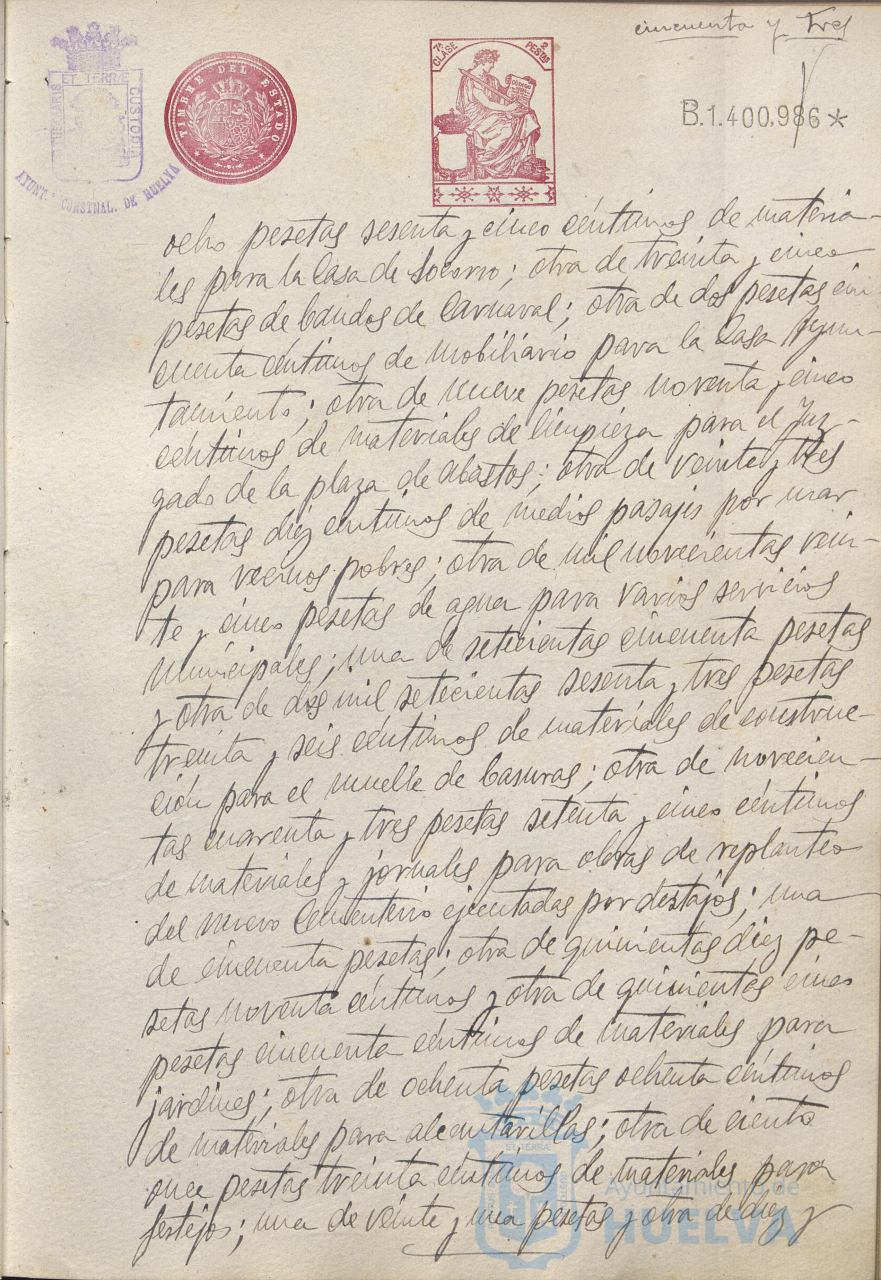 cincuenta y tres
PORTUS MARIS ET TERRÆ CUSTODIA
AYUNT. CONSTNAL. DE HUELVA
TIMBRE DEL ESTADO
7ª CLASE 2 PESTAS
B.1.400,986*
ocho pesetas sesenta y cinco céntimos de materia-
les para la Casa de Socorro; otra de treinta y cinco
pesetas de bandos de Carnaval; otra de dos pesetas cin-
cuenta céntimos de mobiliario para la Casa Ayun-
tamiento; otra de nueve pesetas noventa y cinco
céntimos de materiales de limpieza para el Juz-
gado de la plaza de Abastos; otra de veinte y tres
pesetas diez céntimos de medios pasajes por mar
para vecinos pobres; otra de mil novecientas vein-
te y cinco pesetas de agua para varios servicios
municipales; una de setecientas cincuenta pesetas
y otra de dos mil setecientas sesenta y tres pesetas
treinta y seis céntimos de materiales de construc-
ción para el muelle de basuras; otra de novecien-
tas cuarenta y tres pesetas setenta y cinco céntimos
de materiales y jornales para obras de replanteo
del nuevo Cementerio ejecutadas por destajos; una
de cincuenta pesetas; otra de quinientas diez pe-
setas noventa céntimos y otra de quinientas cinco
pesetas cincuenta céntimos de materiales para
jardines; otra de ochenta pesetas ochenta céntimos
de materiales para alcantarillas; otra de ciento
once pesetas treinta céntimos de materiales para
festejos; una de veinte y una pesetas y otra de diez y
Ayuntamiento de
HUELVA